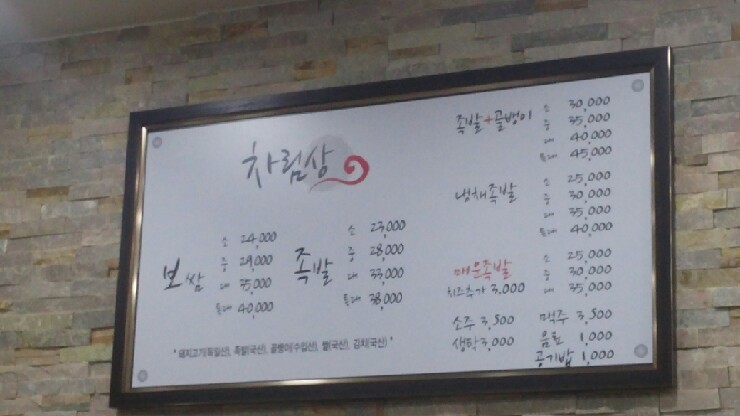 차림상
보쌈
소 24,000
중 29,000
대 35,000
특대 40,000
족발
소 23,000
중 28,000
대 33,000
특대 38,000
족발+골뱅이
소 30,000
중 35,000
대 40,000
특대 45,000
냉채족발
소 25,000
중 30,000
대 35,000
특대 40,000
매운족발
치즈추가 3,000
소 25,000
중 30,000
대 35,000
소주 3,500 맥주 3,500
생탁 3,000 음료 1,000
공기밥 1,000
" 돼지고기( ), 족발(국산), 골뱅이(수입산), 쌀(국산), 김치(국산) "